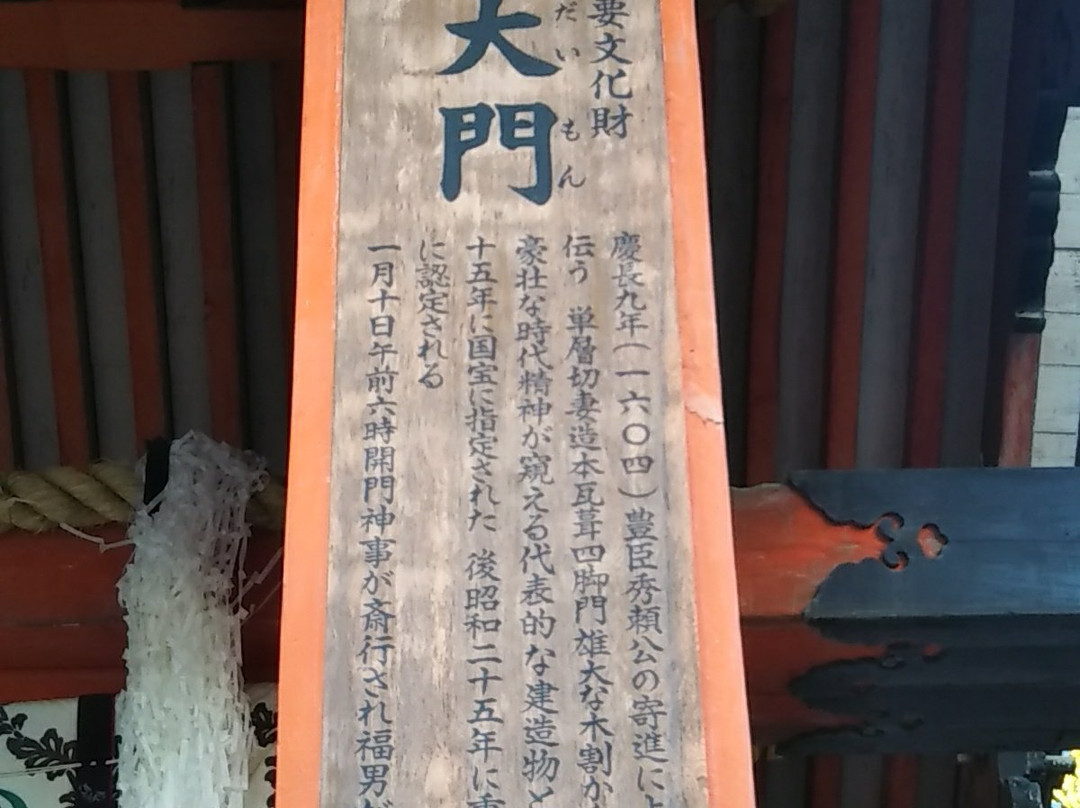 要文化財
大門
だいもん
慶長九年(一六〇四)豊臣秀頼公の寄進に
伝う 単層切妻造本瓦葺四脚門雄大な木割か
豪壮な時代精神が窺える代表的な建造物と
十五年に国宝に指定された 後昭和二十五年に重
に認定される
一月十日午前六時開門神事が斎行され福男が